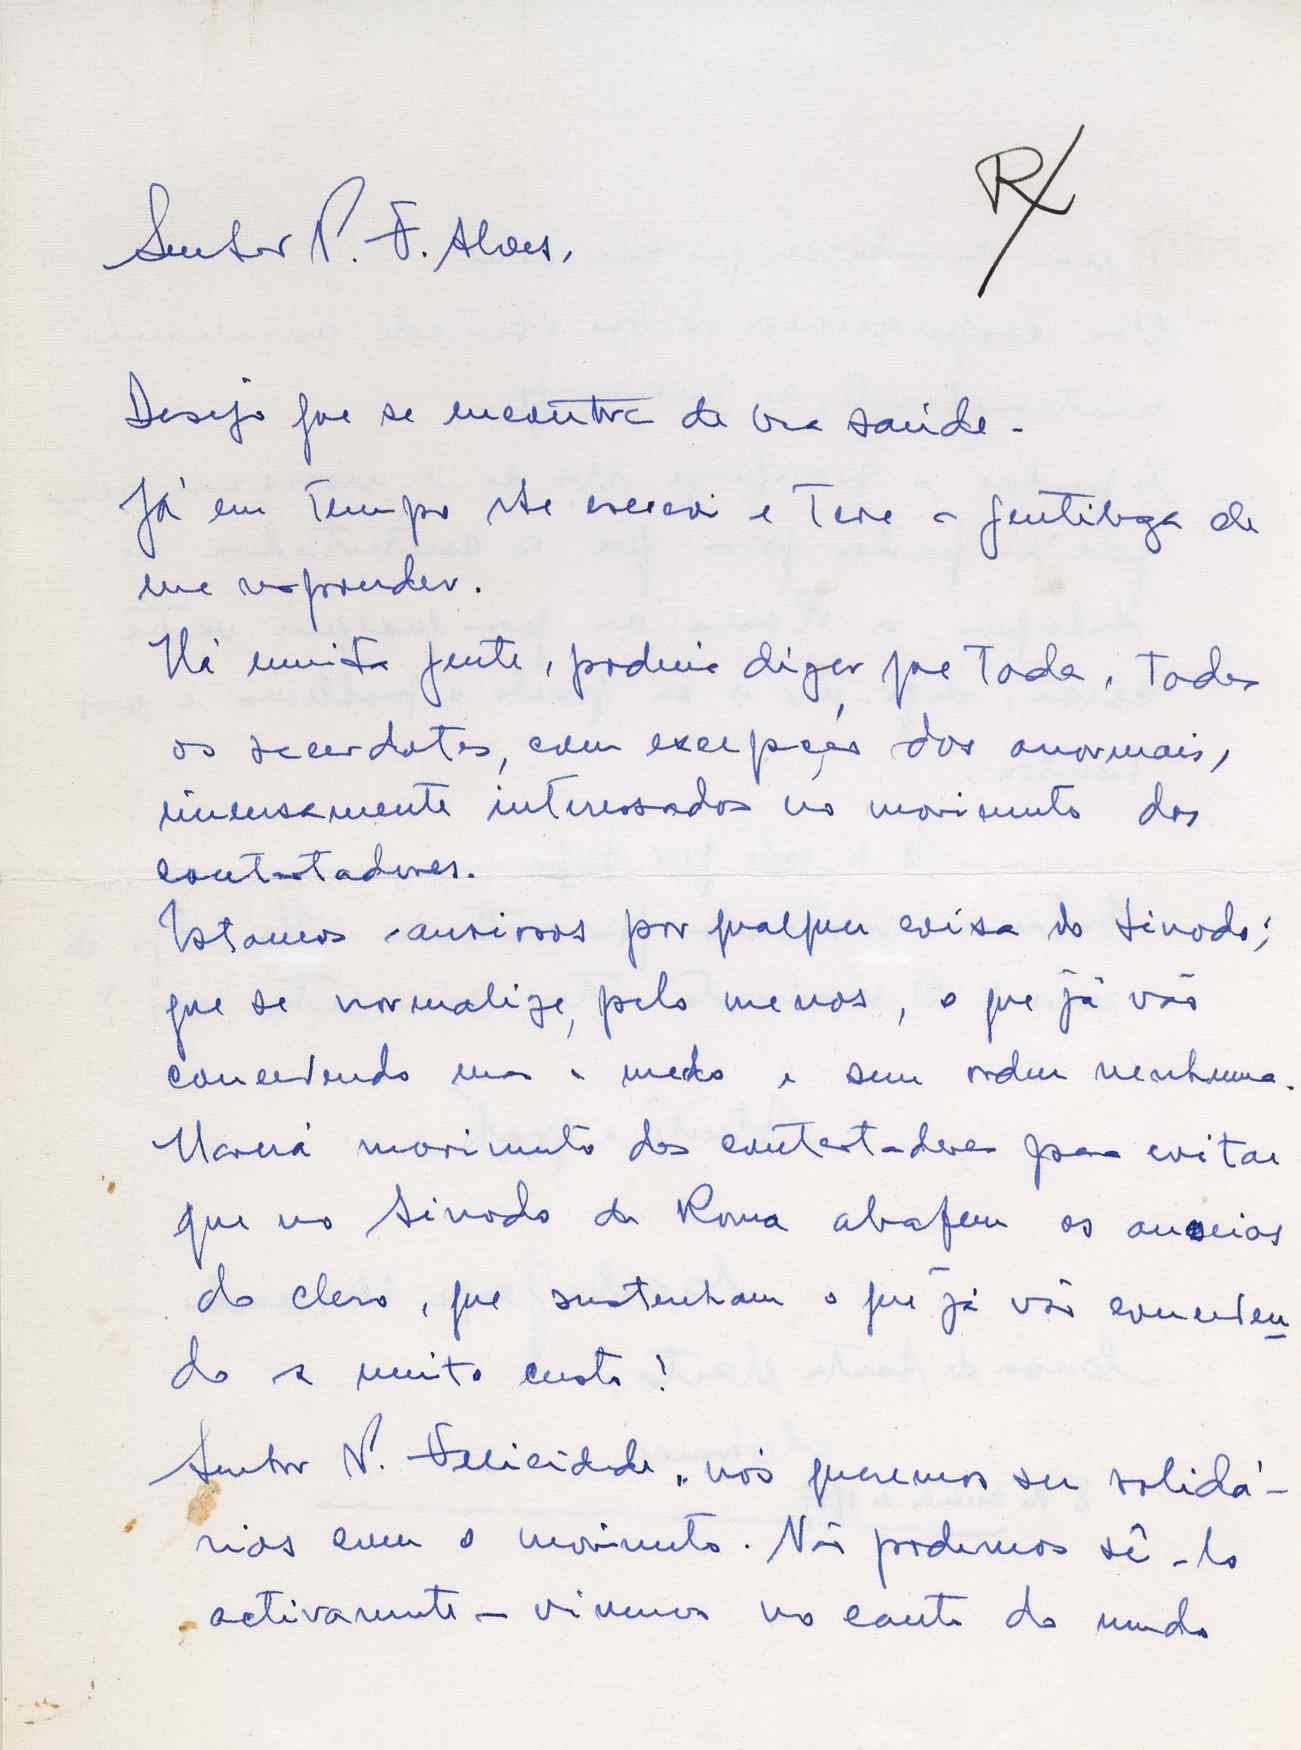 R/
Senhor P. F. Alves,
Desejo que se encontre de boa saúde.
Já em tempo lhe escrevi e teve a gentileza de
me responder.
Há muita gente, poderia dizer que toda, todos
os sacerdotes, com excepção dos anormais,
imensamente interessados no movimento dos
contestadores.
Estamos ansiosos por qualquer coisa do Sínodo;
que se normalize, pelo menos, o que já vão
concedendo a medo e sem ordem nenhuma.
Haverá movimento dos contestadores para evitar
que no Sínodo de Roma abafem os anseios
do clero, que sustenham o que já vão conceden
do a muito custo!
Senhor P. Felicidade, nós queremos ser solidá-
rios com o movimento. Não podemos sê-lo
activamente - vivemos no canto do mundo